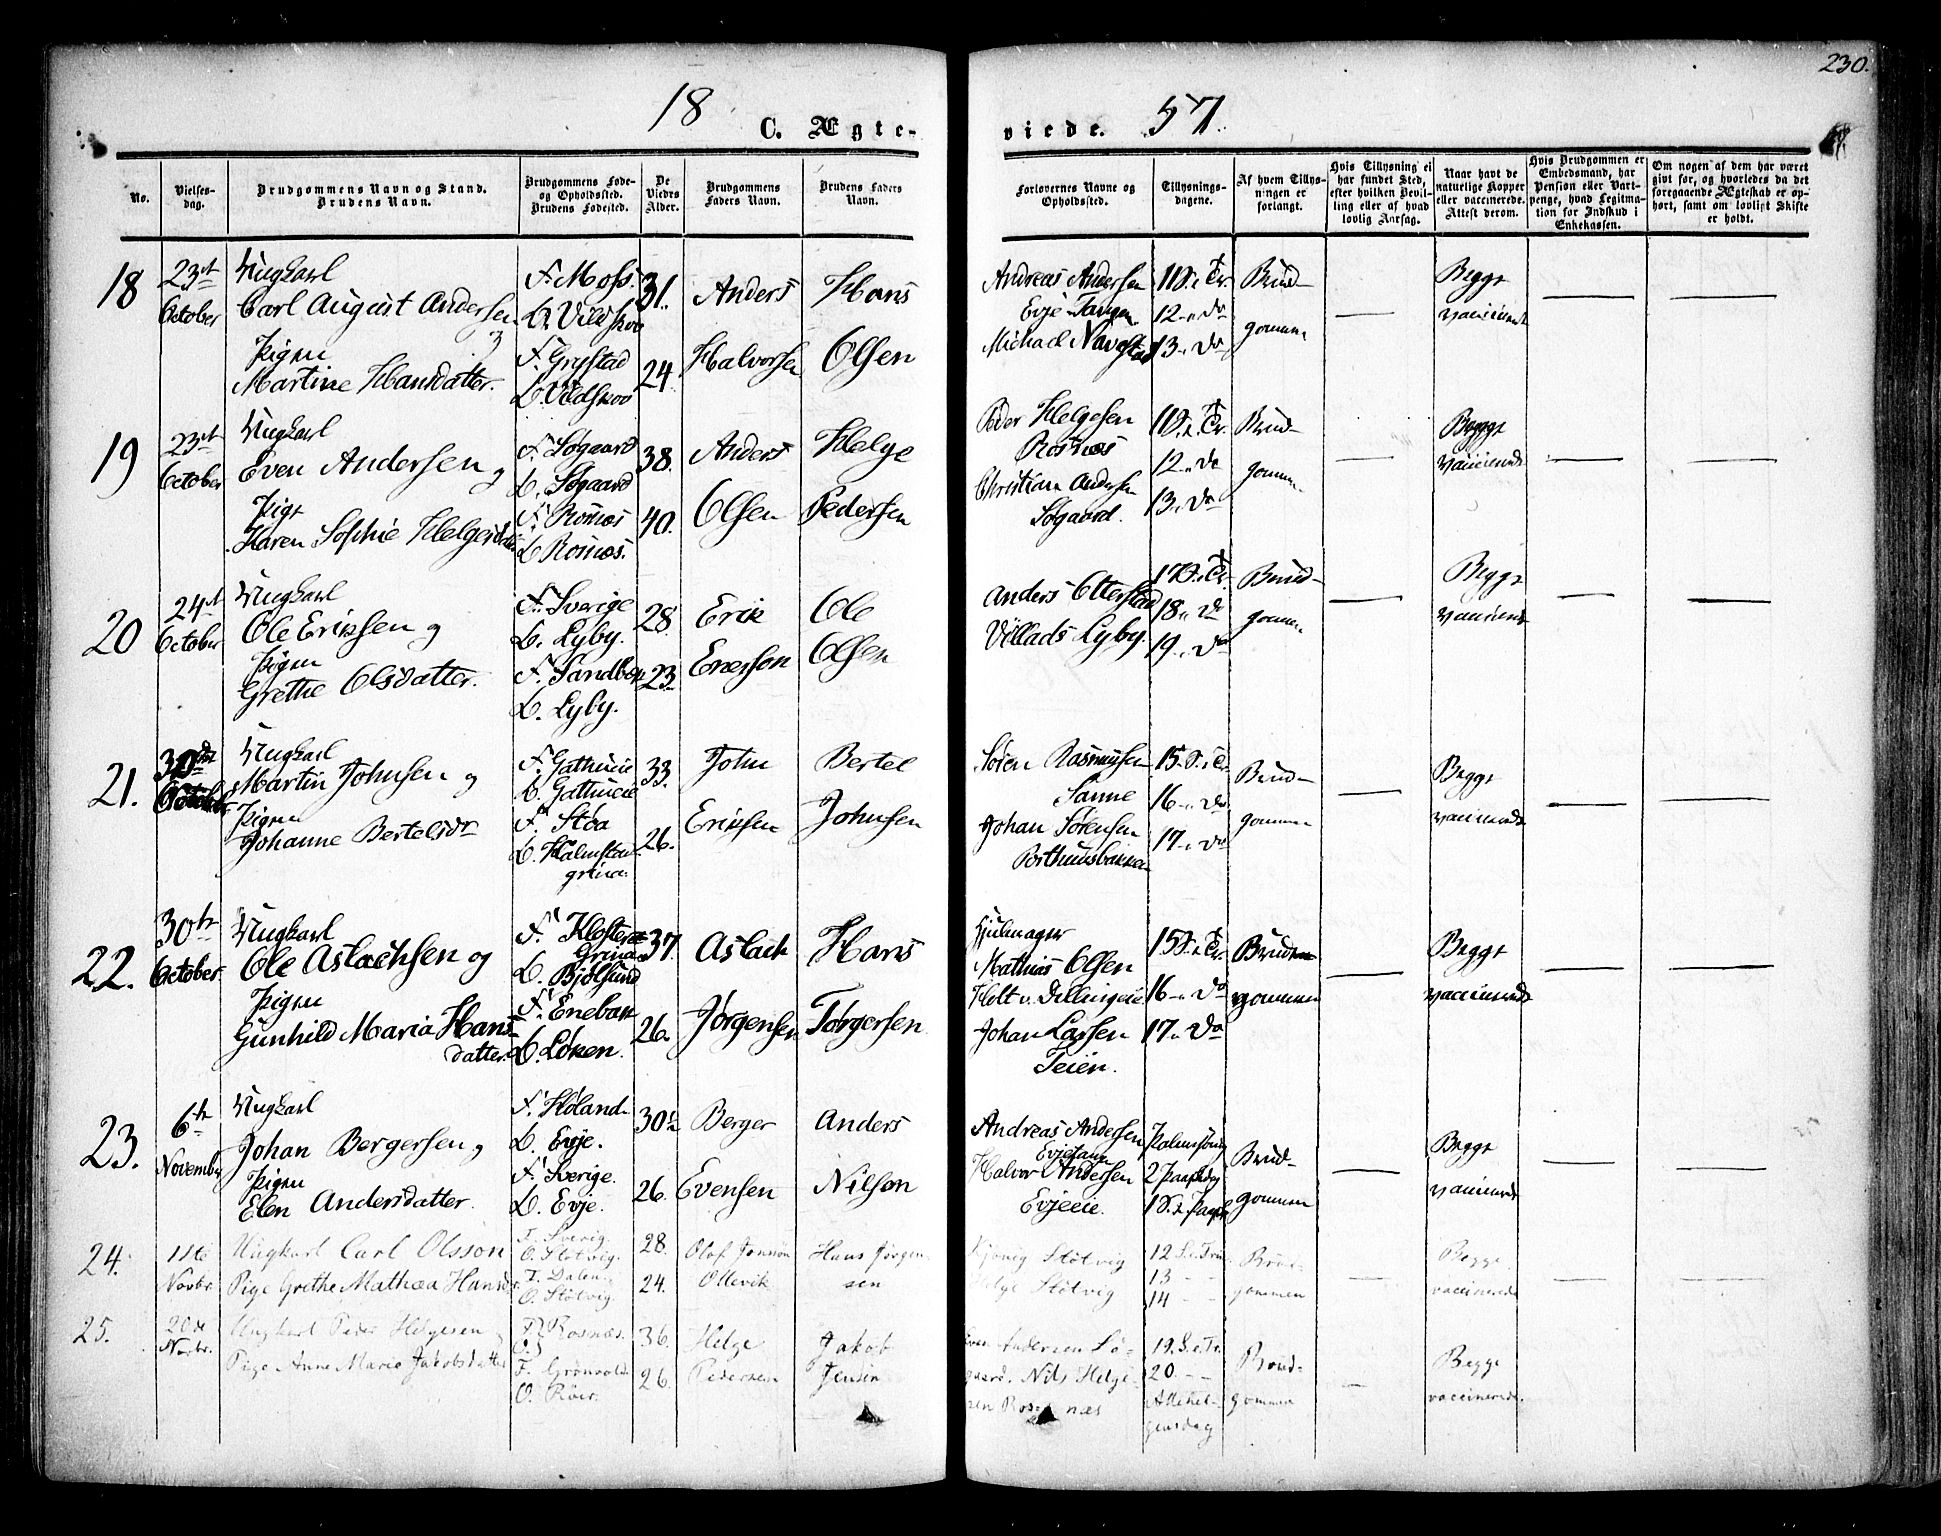 230.
18 C. Ægte-
viede. 57.
No.
Vielses-
dag.
Brudgommens Navn og Stand.
Brudens Navn.
Brudgommens Føde-
og Opholdssted.
Brudens Fødested.
De
Viedes
Alder.
Brudgommens
Faders Navn.
Brudens Faders
Navn.
Forlovernes Navne og
Opholdssted.
Tillysnings-
dagene.
Af hvem Tillys-
ningen er
forlangt.
Hvis Tillysning ei
har fundet Sted,
efter hvilken Bevil-
ling eller af hvad
lovlig Aarsag.
Naar havt de
natuelige Kopper
eller vaccinerede.
Attest derom.
Hvis Brudgommen er
Embedsmand, har
Pension eller Vart-
penge, hvad Legitma-
tion for Indskud i
Enkekassen.
Om nogen af dem har været
givt før, og hvorledes da det
foregaaende Ægteskab er op-
hørt, samt om lovligt Skifte
er holdt.
18
23
October
Ungkarl
Carl August Andersen
Pigen
Martine Hansdatter.
F. Moss.
O. Vildskov
F. Grystad
O. Vildskov
31.
24.
Anders
Halvorsen
Hans
Olsen
Andreas Andersen
Evje Tangen
Michael Navestad
11 S. e. Tr.
12 - „ do
13 - „ do
Brud-
gommen
Begge
vaccinerede
19
23
October
Ungkarl
Even Andersen og
Pige
Karen Sophie Helgesdatter
F. Søgaard
O. Søgaard
F. Rosnæs
O. Rosnæs.
38.
40.
Anders
Olsen
Helge
Pedersen
Peder Helgesen
Rosnæs
Christian Andersen
Søgaard.
11 S. e. Tr.
12 „ do
13 „ do
Brud-
gommen
Begge
vaccinerede
20
24
October
Ungkarl
Ole Eriksen og
Pigen
Grethe Olsdatter.
F. Sverige
O. Lyby.
F. Sandbæk
O. Lyby.
28
23
Erik
Ericsson
Ole
Olsen
Anders Otterstad
Villads Lyby.
17 S. e. Tr.
18 „ do
19 „ do
Brud-
gommen
Begge
vaccinerede
21.
30
October
Ungkarl
Martin Johnsen og
Pigen
Johanne Bertelsdr
F. Gathueie
O. Gathueie
F. Stoa
O. Halmstad
grina.
33.
26.
John
Eriksen
Bertel
Johnsen
Søren Rasmusen
Sanne
Johan Sørensen
15. S. e. Tr.
16 - „ do
17 - „ do
Brud-
gommen
Begge
vaccinerede
22.
30te
October
Ungkarl
Ole Aslachsen og
Pigen
Gunhild Maria Hans
datter
F. Kloster
Grina
O. Bjølsund
F. Enebak
O. Løken.
37.
26.
Aslach
Jørgensen
Hans
Torgersen
Hjulmager
Mathias Olsen
Holt v. Dillingeie
Johan Larsen
Teien.
15 S. e. Tr.
16 - „ do
17 „ do
Brud-
gommen
Begge
vaccinerede
23.
6te
November
Ungkarl
Johan Bergersen og
Pigen
Elen Andersdatter.
F. Høland
O. Evje.
F. Sverige.
O. Evje.
30
26.
Berger
Evensen
Anders
Nilson
Andreas Andersen
Evjetang
Halvor Andersen
Evjeeie.
Palmsøndag
2 Paaskedag
1 S. e. Paaske
Brud-
gommen
Begge
vaccinerede
24.
18de
Novbr.
Ungkarl Carl Olsson
Pige Grethe Mathea Hansdr.
F. Sverig.
O. Støtvig.
F. Dalen
O. Støtvig
28.
24.
Olof Jonson
Ollevik
Hans Jørgen-
sen
Kjønig Støtvig
Helge Støtvig
12 S. e. Trin.
13 - -
14 - -
Brud-
gommen
Begge
vaccinerede
25.
20de
Novbr.
Ungkarl Peder Helgesen
Pige Anne Marie Jakobsdatter
F. } Rosnæs.
O. }
F. Grønvold
O. Röer.
36.
26.
Helge
Pedersen
Jakob
Jensen
Even Andersen Sø-
gaard. Nils Helge-
sen Rosnæs
19. S. e. Tr.
20. - -
Allehel-
gensdag
Brud-
gommen
Begge
vaccinerede.